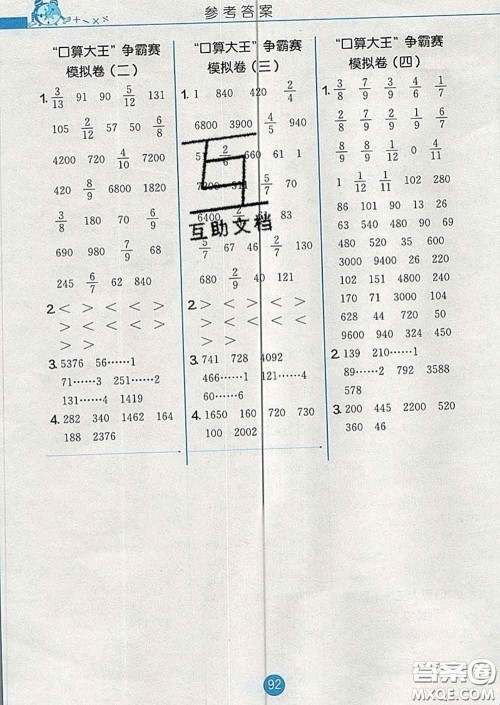 参考答案
“口算大王”争霸赛
模拟卷(二)
1. 3/13 91 90 5/12 131
105 2/12 57 50 6/8
4200 720 4/10 7200
420 8/9 6800 130
3/8 180 70 5/7
690 980 7/9 68
245 6/7 62 840
2. < > < > <
> > > < <
>
3. 5376 56……1
71……3 251……2
131……4 1419
4. 282 340 1462 164
188 2376
“口算大王”争霸赛
模拟卷(三)
1. 1 840 420 2/4
6800 3900 4/5 940
2/6 660 61 1
5/7 70
6400 83
5/7 67 46 130
680 2/9 40 121
2. > < > < <
3. 741 728 4092
466……1 121……4
60……6
4. 1650 160 720 730
100 2002
“口算大王”争霸赛
模拟卷(四)
1. 3/8 7/9 3/5 4/6 1/7
2/8 7/8 9/9 3/6 6/7
8/9 8/9 1/2 0 4/11
1 1/12 1/11 102 280
86 101 90 13 26
63 540 90 50 89
480 690 120 86
38 151 90 420
64 210 4800 720
3200 450 640 400
9600 930 4 132
2. 139 210……2
89……2 792 3735
578
3. 200 445 380 840
360 46
互助文档
92
答案圈
MXQE.COM